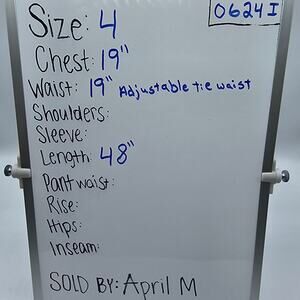 Size: 4
0624I
Chest: 19"
Waist: 19" Adjustable tie waist
Shoulders:
Sleeve:
Length: 48"
Pant waist:
Rise:
Hips:
Inseam:
SOLD BY: April M